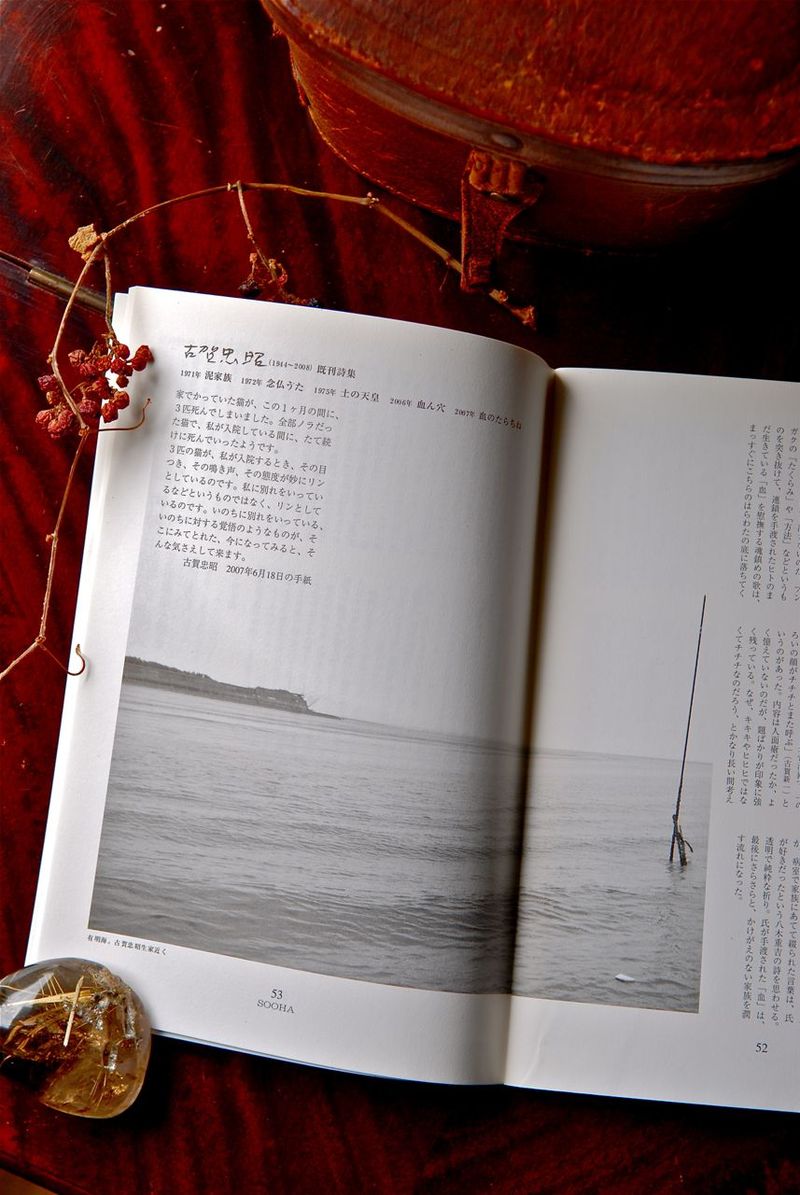 古賀忠昭 (1944~2008) 既刊詩集
1971年 泥家族 1972年 念仏うた 1975年 土の天皇 2006年 血ん穴 2007年 血のたらちね
家でかっていた猫が、この1ヶ月の間に、
3匹死んでしまいました。全部ノラだっ
た猫で、私が入院している間に、たて続
けに死んでいったようです。
3匹の猫が、私が入院するとき、その目
つき、その鳴き声、その態度が妙にリン
としているのです。私に別れをいってい
るなどというものではなく、リンとして
いるのです。いのちに別れをいっている、
いのちに対する覚悟のようなものが、そ
こにみてとれた、今になってみると、そ
んな気さえして来ます。
古賀忠昭 2007年6月18日の手紙
有明海。古賀忠昭生家近く
53
SOOHA
ガクの「たくらみ」や「方法」などというも
のを突き抜けて、連鎖を手渡されたヒトのま
だ生きている「血」を慰撫する魂鎮めの歌は、
まっすぐにこちらのはらわたの底に落ちてく
ろいの顔がチチチとまた呼ぶ」(古賀新一)と
いうのがあった。内容は人面瘡だったか、よ
く憶えていないのだが、題ばかりが印象に強
く残っている。なぜ、キキキやヒヒヒではな
くてチチチなのだろう、とかなり長い間考え
が、病室で家族にあてて綴られた言葉は、氏
が好きだったという八木重吉の詩を思わせる。
透明で純粋な祈り。氏が手渡された「血」は、
最後にさらさらと、かけがえのない家族を潤
す流れになった。
52